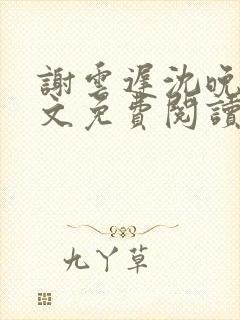 謝雲遲沈晚
文免費閱讀
九丫草